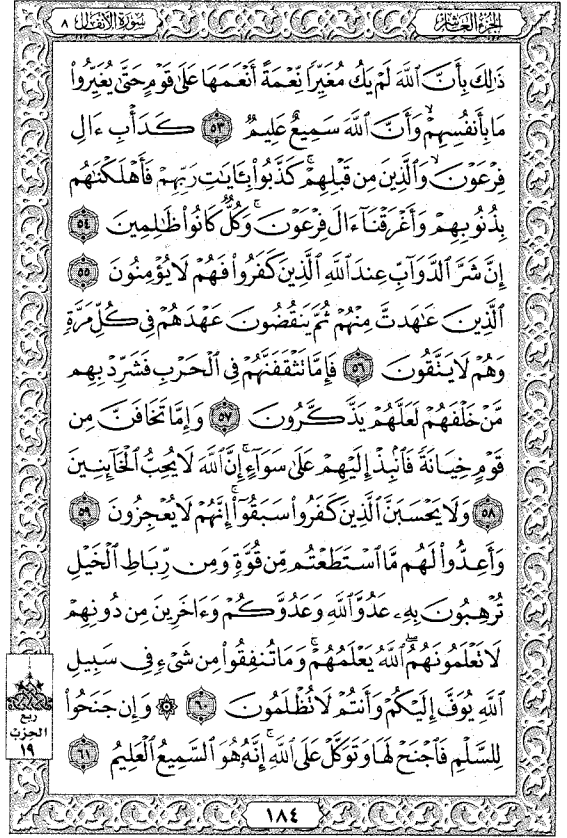 سورة الأنفال ٨
الجزء العاشر
ذَٰلِكَ بِأَنَّ ٱللَّهَ لَمْ يَكُ مُغَيِّرًا نِّعْمَةً أَنْعَمَهَا عَلَىٰ قَوْمٍ حَتَّىٰ يُغَيِّرُوا۟
مَا بِأَنفُسِهِمْ ۙ وَأَنَّ ٱللَّهَ سَمِيعٌ عَلِيمٌ ٥٣ كَدَأْبِ ءَالِ
فِرْعَوْنَ ۙ وَٱلَّذِينَ مِن قَبْلِهِمْ ۚ كَذَّبُوا۟ بِـَٔايَـٰتِ رَبِّهِمْ فَأَهْلَكْنَـٰهُم
بِذُنُوبِهِمْ وَأَغْرَقْنَآ ءَالَ فِرْعَوْنَ ۚ وَكُلٌّ كَانُوا۟ ظَـٰلِمِينَ ٥٤
إِنَّ شَرَّ ٱلدَّوَآبِّ عِندَ ٱللَّهِ ٱلَّذِينَ كَفَرُوا۟ فَهُمْ لَا يُؤْمِنُونَ ٥٥
ٱلَّذِينَ عَـٰهَدتَّ مِنْهُمْ ثُمَّ يَنقُضُونَ عَهْدَهُمْ فِى كُلِّ مَرَّةٍ
وَهُمْ لَا يَتَّقُونَ ٥٦ فَإِمَّا تَثْقَفَنَّهُمْ فِى ٱلْحَرْبِ فَشَرِّدْ بِهِم
مَّنْ خَلْفَهُمْ لَعَلَّهُمْ يَذَّكَّرُونَ ٥٧ وَإِمَّا تَخَافَنَّ مِن
قَوْمٍ خِيَانَةً فَٱنۢبِذْ إِلَيْهِمْ عَلَىٰ سَوَآءٍ ۚ إِنَّ ٱللَّهَ لَا يُحِبُّ ٱلْخَآئِنِينَ
٥٨ وَلَا يَحْسَبَنَّ ٱلَّذِينَ كَفَرُوا۟ سَبَقُوٓا۟ ۚ إِنَّهُمْ لَا يُعْجِزُونَ ٥٩
وَأَعِدُّوا۟ لَهُم مَّا ٱسْتَطَعْتُم مِّن قُوَّةٍ وَمِن رِّبَاطِ ٱلْخَيْلِ
تُرْهِبُونَ بِهِۦ عَدُوَّ ٱللَّهِ وَعَدُوَّكُمْ وَءَاخَرِينَ مِن دُونِهِمْ
لَا تَعْلَمُونَهُمُ ٱللَّهُ يَعْلَمُهُمْ ۚ وَمَا تُنفِقُوا۟ مِن شَىْءٍ فِى سَبِيلِ
ٱللَّهِ يُوَفَّ إِلَيْكُمْ وَأَنتُمْ لَا تُظْلَمُونَ ٦٠ ۞ وَإِن جَنَحُوا۟
لِلسَّلْمِ فَٱجْنَحْ لَهَا وَتَوَكَّلْ عَلَى ٱللَّهِ ۚ إِنَّهُۥ هُوَ ٱلسَّمِيعُ ٱلْعَلِيمُ ٦١
ربع
الحزب
١٩
١٨٤